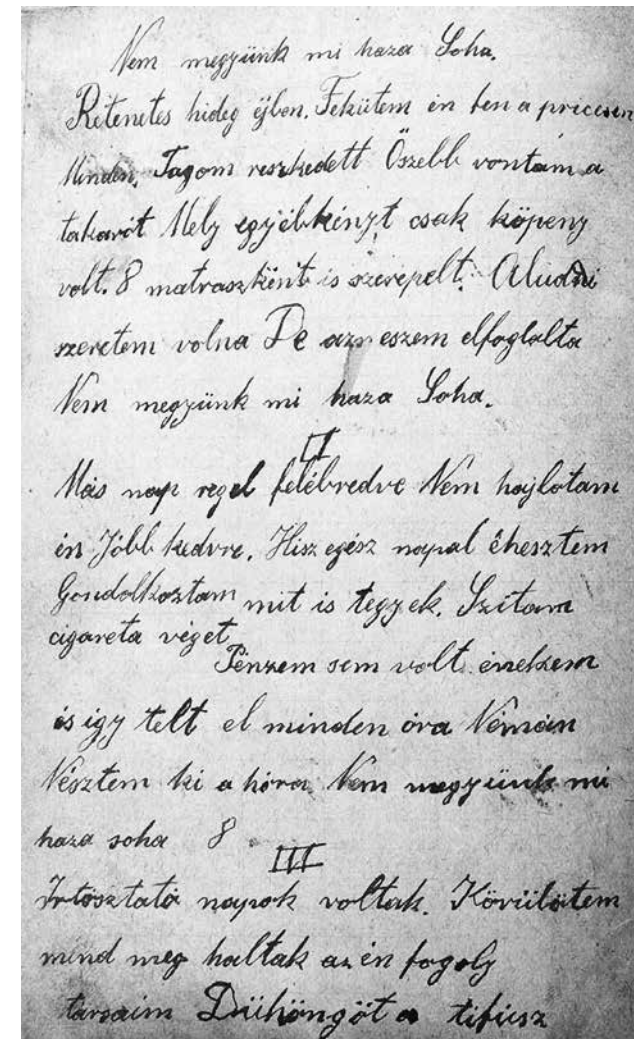 Nem megyünk mi haza Soha.
Retenetes hideg éjben. Feküttem én fen a pricsen
Minden, Tagom reszkedett Öszebb vontam a
takarót Mely egyébkénzt csak köpeny
volt. 8 matraszként is szerepelt. Aludni
szeretem volna De azn eszem elfoglalta
Nem megyünk mi haza Soha.
II
Más nap regel felébredve Nem hajlotam
én Jóbb kedvre. Hisz egész napal éhesztem
Gondolkoztam mit is tegyek. Szítam
cigareta véget
Pénzem sem volt énekem
és így telt el minden óra Némán
Nésztem ki a hóra Nem megyünk mi
haza soha 8
III
Irtósztató napok voltak. Körülötem
mind meg haltak az én fogoly
tarsaim Dühöngöt a tifusz